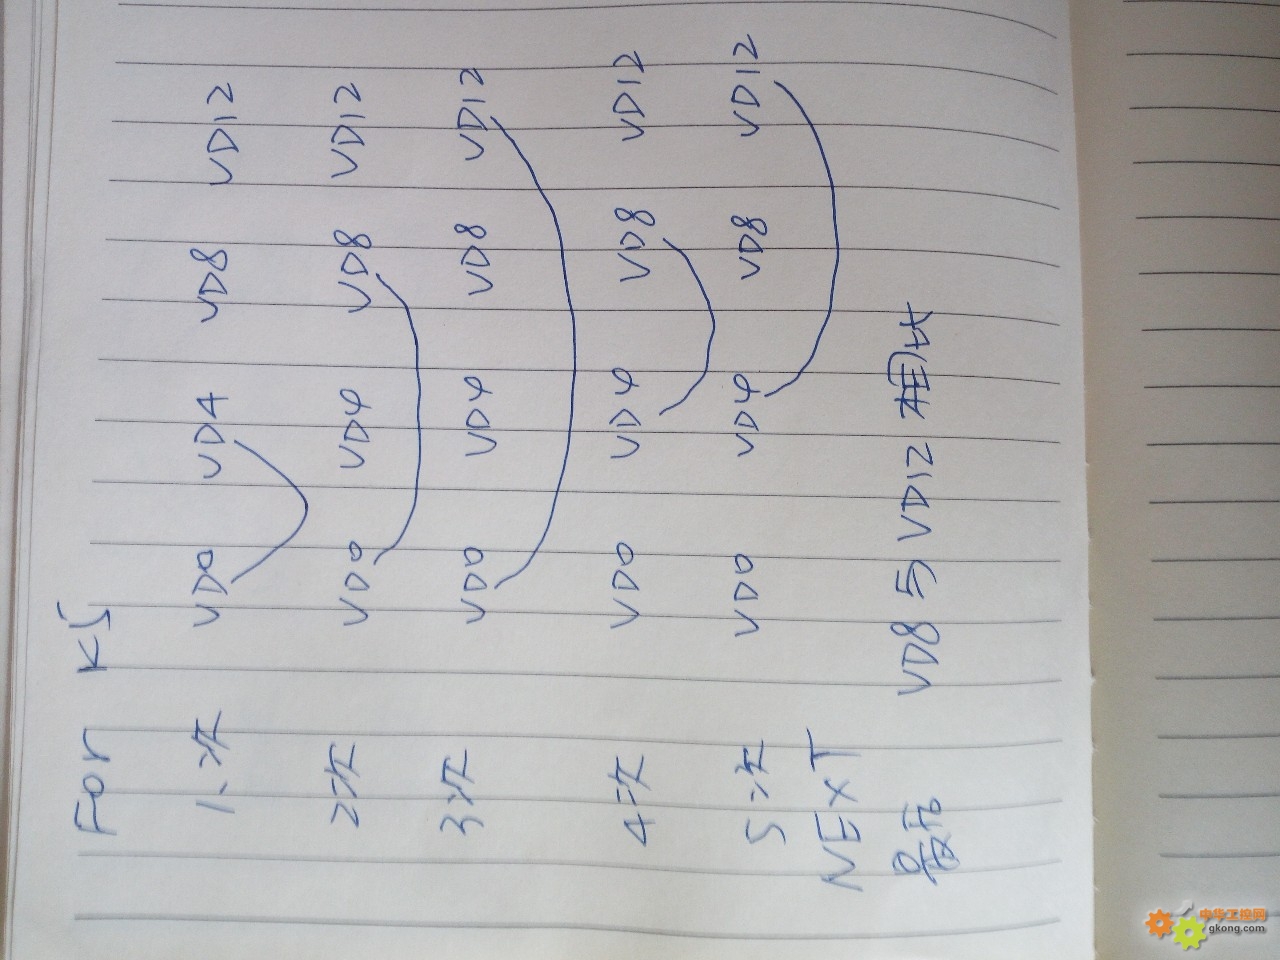 For K5
1次 VD0 VD4 VD8 VD12
2次 VD0 VD4 VD8 VD12
3次 VD0 VD4 VD8 VD12
4次 VD0 VD4 VD8 VD12
5次 VD0 VD4 VD8 VD12
NEXT
最后 VD8与VD12相比
中华工控网
gkong.com